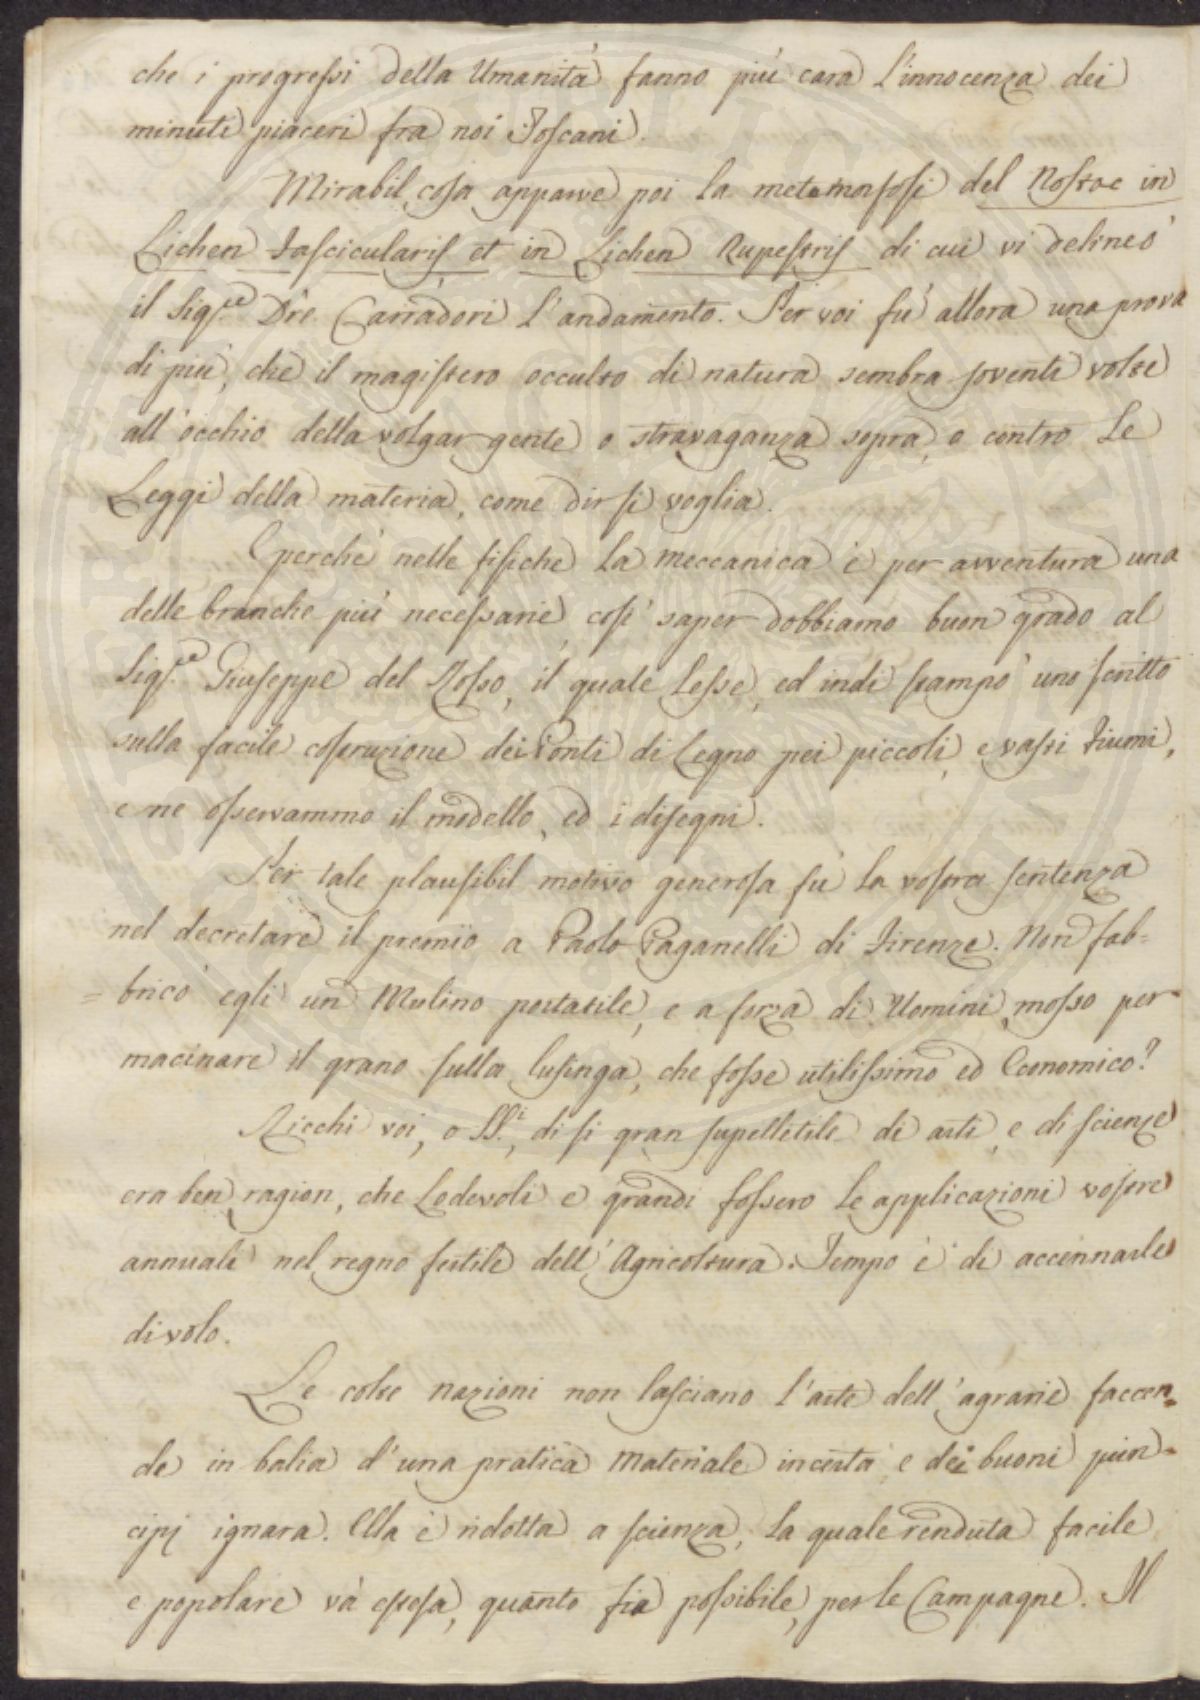 che i progressi della Umanità fanno più cara l'innocenza dei
minuti piaceri fra noi Toscani.
Mirabil cosa apparve poi la metamorfosi del Nostoc in
Lichen Fascicularis et in Lichen Rupestris di cui vi delineò
il Sig.re D're Carradori l'andamento. Per voi fù allora una prova
di più, che il magistero occulto di natura sembra soventi volte
all'occhio della volgar gente o stravaganza sopra, o contro le
Leggi della materia, come dir si voglia.
E perchè nelle fisiche la meccanica è per avventura una
delle branche più necessarie, così saper dobbiamo buon grado al
Sig.re Giuseppe del Rosso, il quale lesse, ed indi stampò uno scritto
sulla facile costruzione dei Ponti di Legno pei piccoli, e vasti Fiumi,
e ne osservammo il modello, ed i disegni.
Per tale plausibil motivo generosa fù la vostra sentenza
nel decretare il premio a Paolo Paganelli di Firenze. Non fab=
=bricò egli un Mulino portatile, e a forza di Uomini mosso per
macinare il grano sulla lusinga, che fosse utilissimo ed Economico?
Ricchi voi, o SS.i, di si gran supelletile di arti, e di scienze
era ben ragion, che Lodevoli e grandi fossero le applicazioni vostre
annuali nel regno fertile dell'Agricoltura. Tempo è di accennarle
di volo.
Le colte nazioni non lasciano l'arte dell'agrarie faccen=
de in balia d'una pratica materiale incerta, e dei buoni prin=
cipj ignara. Ella è ridotta a scienza, la quale renduta facile
e popolare và estesa, quanto fia possibile, per le Campagne. Il